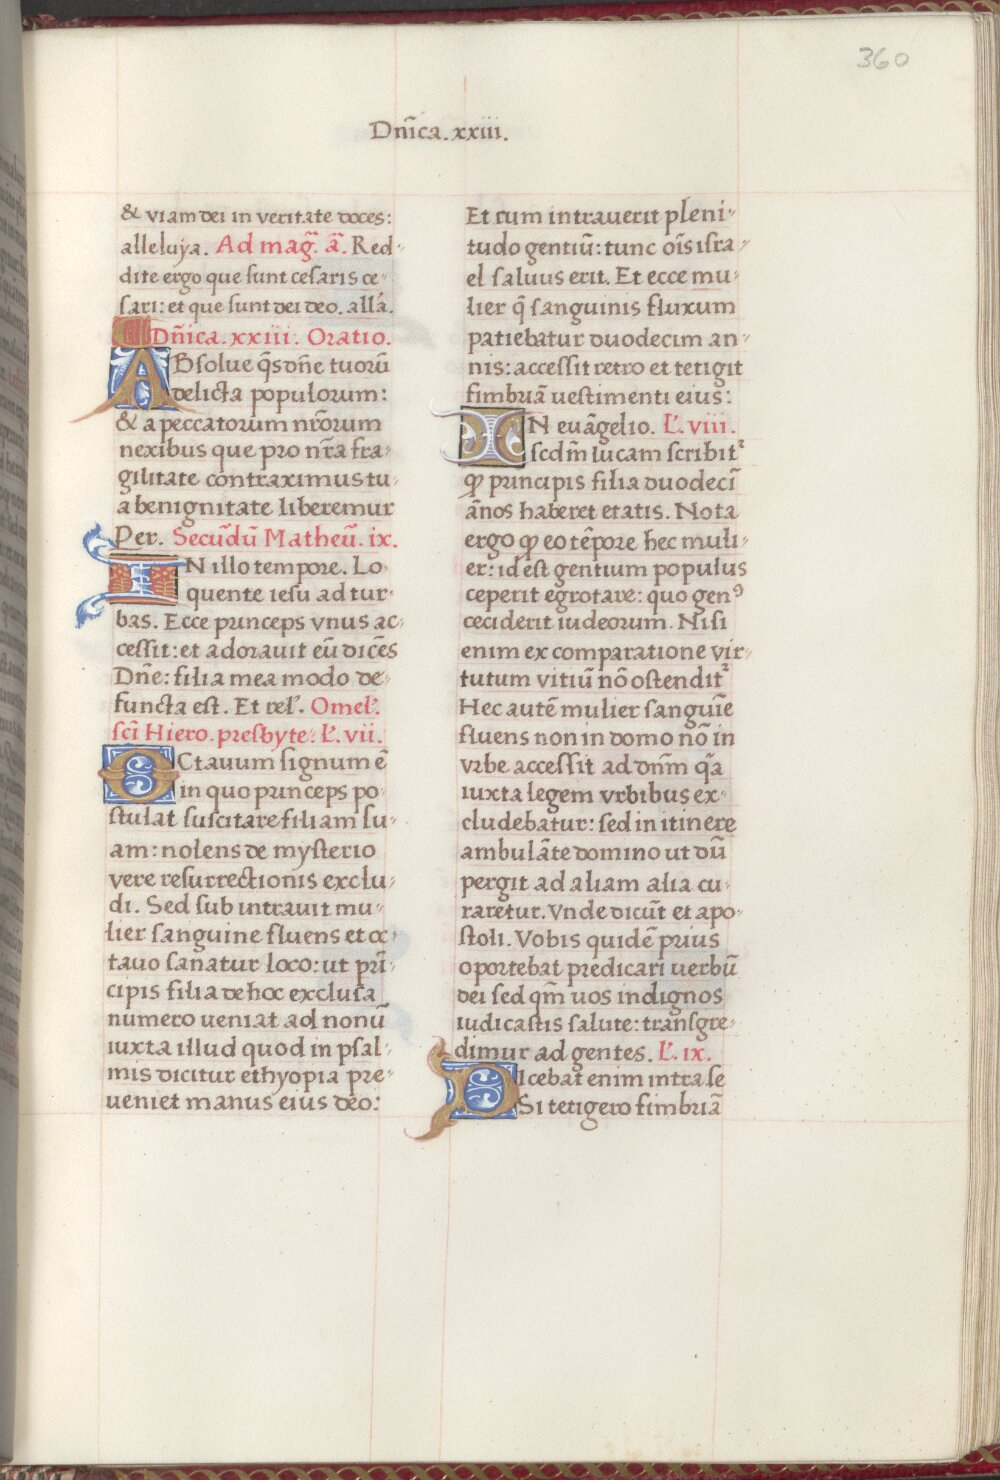 360
Dñica.xxiii.
& viam dei in veritate doces:
alleluya. Ad mag̃. ã. Red-
dite ergo que sunt cesaris ce-
sari: et que sunt dei deo. allã.
Dñica.xxiii. Oratio.
ABsolue q̃s dñe tuorũ
delicta populorum:
& a peccatorum nr̃orum
nexibus que pro nr̃a fra-
gilitate contraximus tu-
a benignitate liberemur
Per. Secũdũ Matheũ. ix.
IN illo tempore. Lo-
quente iesu ad tur-
bas. Ecce princeps vnus ac-
cessit: et adorauit eũ dicẽs
Dñe: filia mea modo de-
functa est. Et rel'. Omel'.
sci̅ Hiero. presbyte. L'. vii.
OCtauum signum ẽ
in quo princeps po-
stulat suscitare filiam su-
am: nolens de mysterio
vere resurrectionis exclu-
di. Sed sub intrauit mu-
lier sanguine fluens et oc-
tauo sanatur loco: ut pri̅-
cipis filia de hoc exclusa
numero ueniat ad nonũ
iuxta illud quod in psal-
mis dicitur ethyopia pre-
ueniet manus eius deo:
Et cum intrauerit pleni-
tudo gentiũ: tunc oi̅s isra-
el saluus erit. Et ecce mu-
lier q̃ sanguinis fluxum
patiebatur duodecim an-
nis: accessit retro et tetigit
fimbriã uestimenti eius:
IN euãgelio. L'. viii.
scdm̅ lucam scribit᷑
ꝙ principis filia duodeci̅
ãnos haberet etatis. Nota
ergo ꝙ eo tẽpore hec muli-
er: id est gentium populus
ceperit egrotare: quo genꝰ
ceciderit iudeorum. Nisi
enim ex comparatione vir-
tutum vitiũ nõ ostendit᷑
Hec autẽ mulier sangui̅e
fluens non in domo nõ in
vrbe accessit ad dnm̅ q̃a
iuxta legem vrbibus ex-
cludebatur: sed in itinere
ambulãte domino ut dũ
pergit ad aliam alia cu-
raretur. Vnde dicũt et apo-
stoli. Vobis quidẽ prius
oportebat predicari uerbũ
dei sed qm̅ uos indignos
iudicastis salute: transgre-
dimur ad gentes. L'. ix.
DIcebat enim intra se
Si tetigero fimbriã